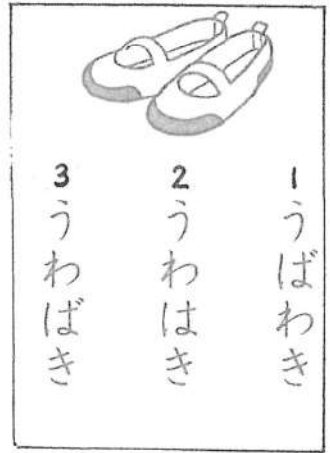 1 うばわき
2 うわはき
3 うわばき